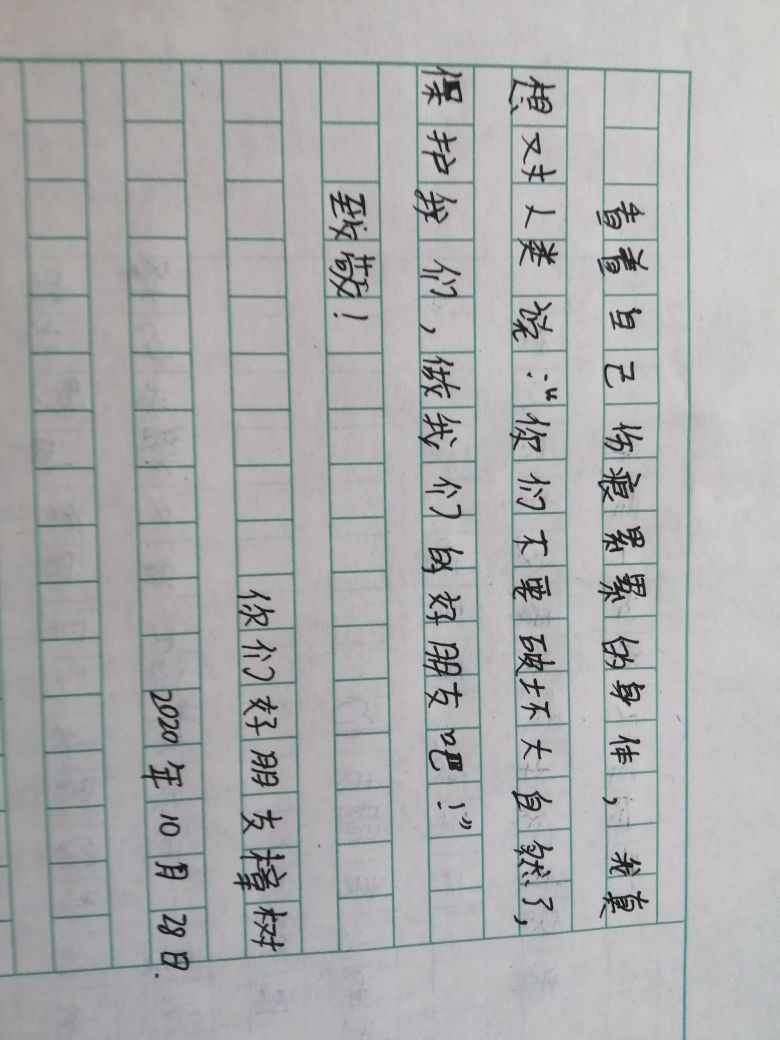 看着自己伤痕累累的身体，我真
想对人类说：“你们不要破坏大自然了，
保护我们，做我们的好朋友吧！”
致敬！
你们好朋友樟树
2020年10月28日.